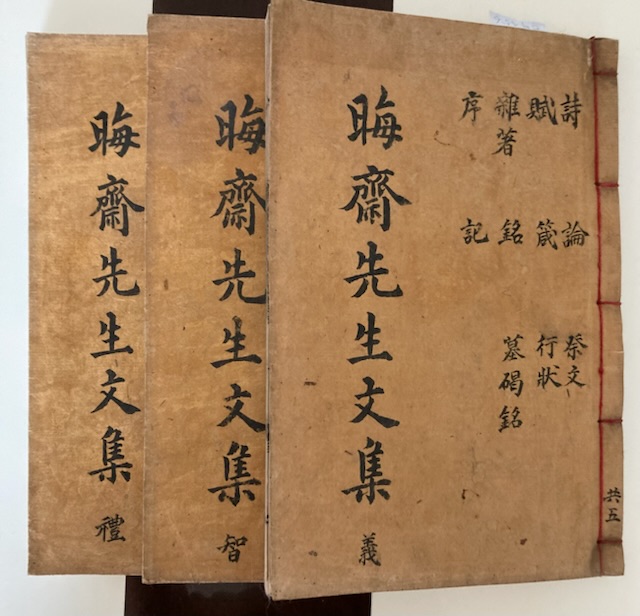 共五
詩 論 祭文
賦 箴 行狀
雜著 銘 墓碣銘
序 記
晦齋先生文集 義
晦齋先生文集 智
晦齋先生文集 禮